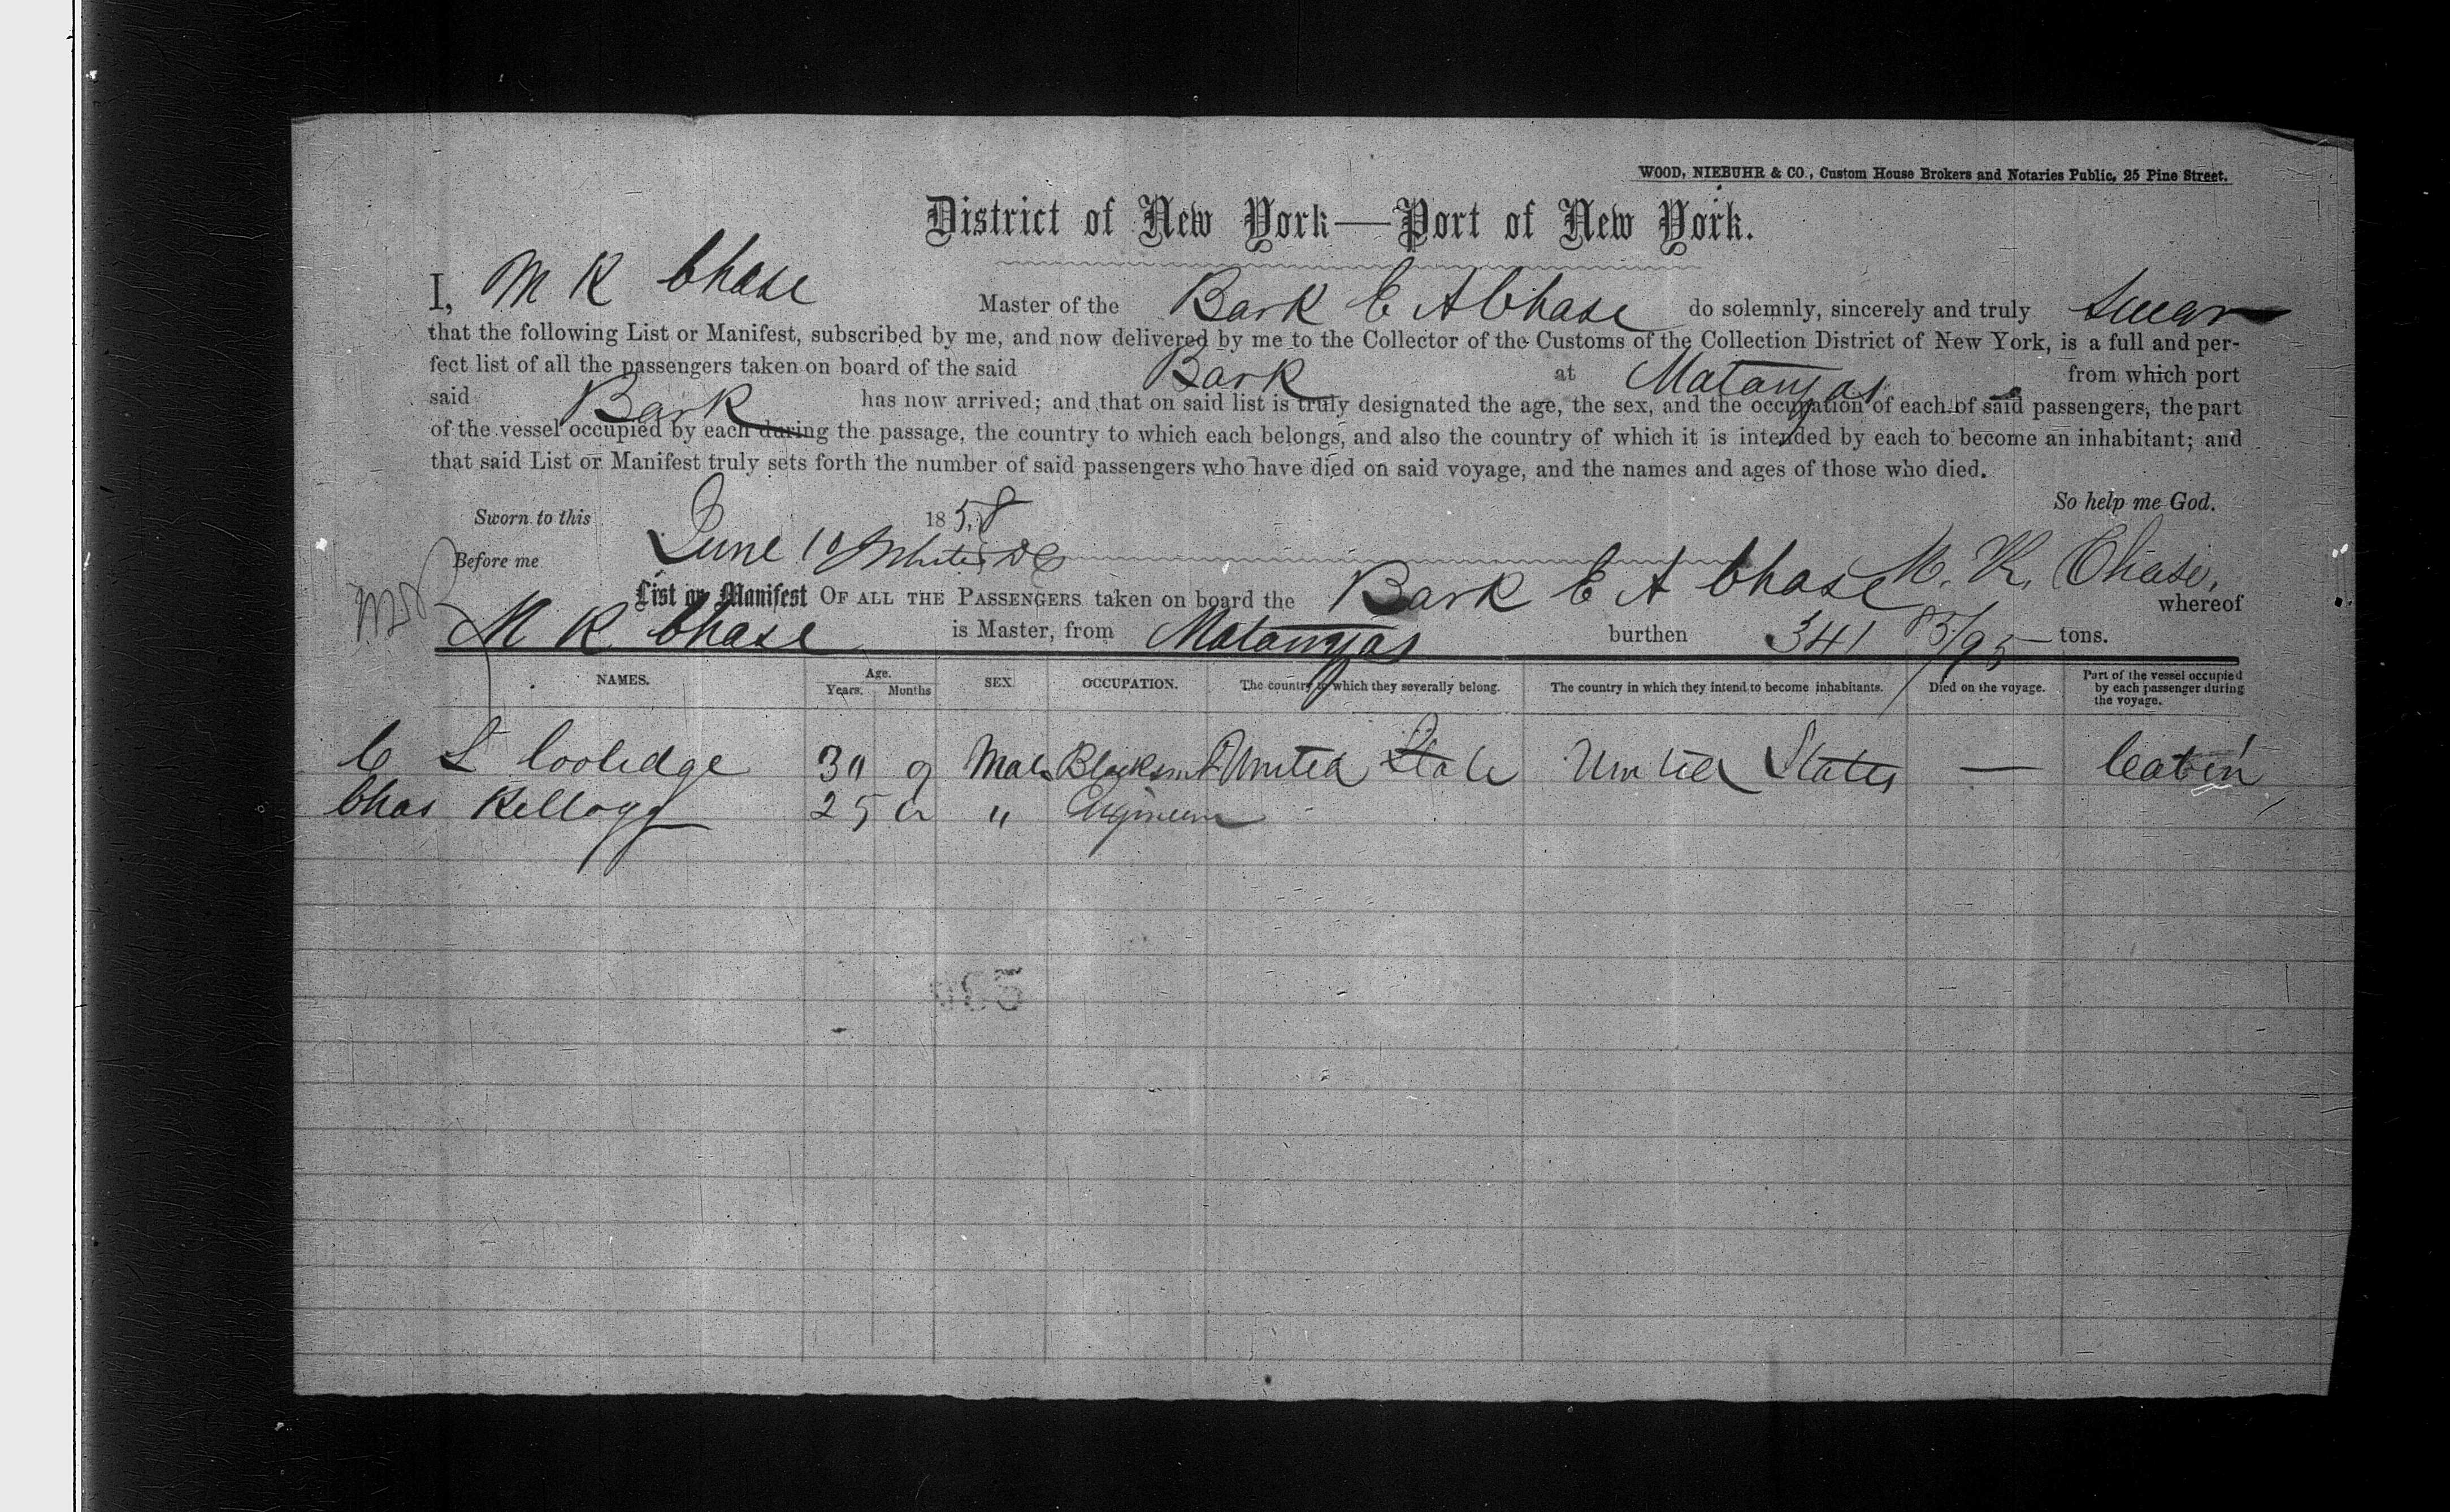 WOOD, NIEBUHR & CO., Custom House Brokers and Notaries Public, 25 Pine Street.
District of New York—Port of New York.
I, M K Chase Master of the Bark E A Chase do solemnly, sincerely and truly swear
that the following List or Manifest, subscribed by me, and now delivered by me to the Collector of the Customs of the Collection District of New York, is a full and per-
fect list of all the passengers taken on board of the said Bark at Matanzas from which port
said Bark has now arrived; and that on said list is truly designated the age, the sex, and the occupation of each of said passengers, the part
of the vessel occupied by each during the passage, the country to which each belongs, and also the country of which it is intended by each to become an inhabitant; and
that said List or Manifest truly sets forth the number of said passengers who have died on said voyage, and the names and ages of those who died.
So help me God.
Sworn to this June 10 1858
Before me M. K. Chase,
List or Manifest OF ALL THE PASSENGERS taken on board the Bark E A Chase whereof
M K Chase is Master, from Matanzas burthen 341 85/95 tons.
NAMES. Age. Years. Months SEX OCCUPATION. The country to which they severally belong. The country in which they intend to become inhabitants. Died on the voyage. Part of the vessel occupied by each passenger during the voyage.
C L Coolidge 30 9 Male Blacksmith United State United States —
Chas Kellogg 25 " Engineer